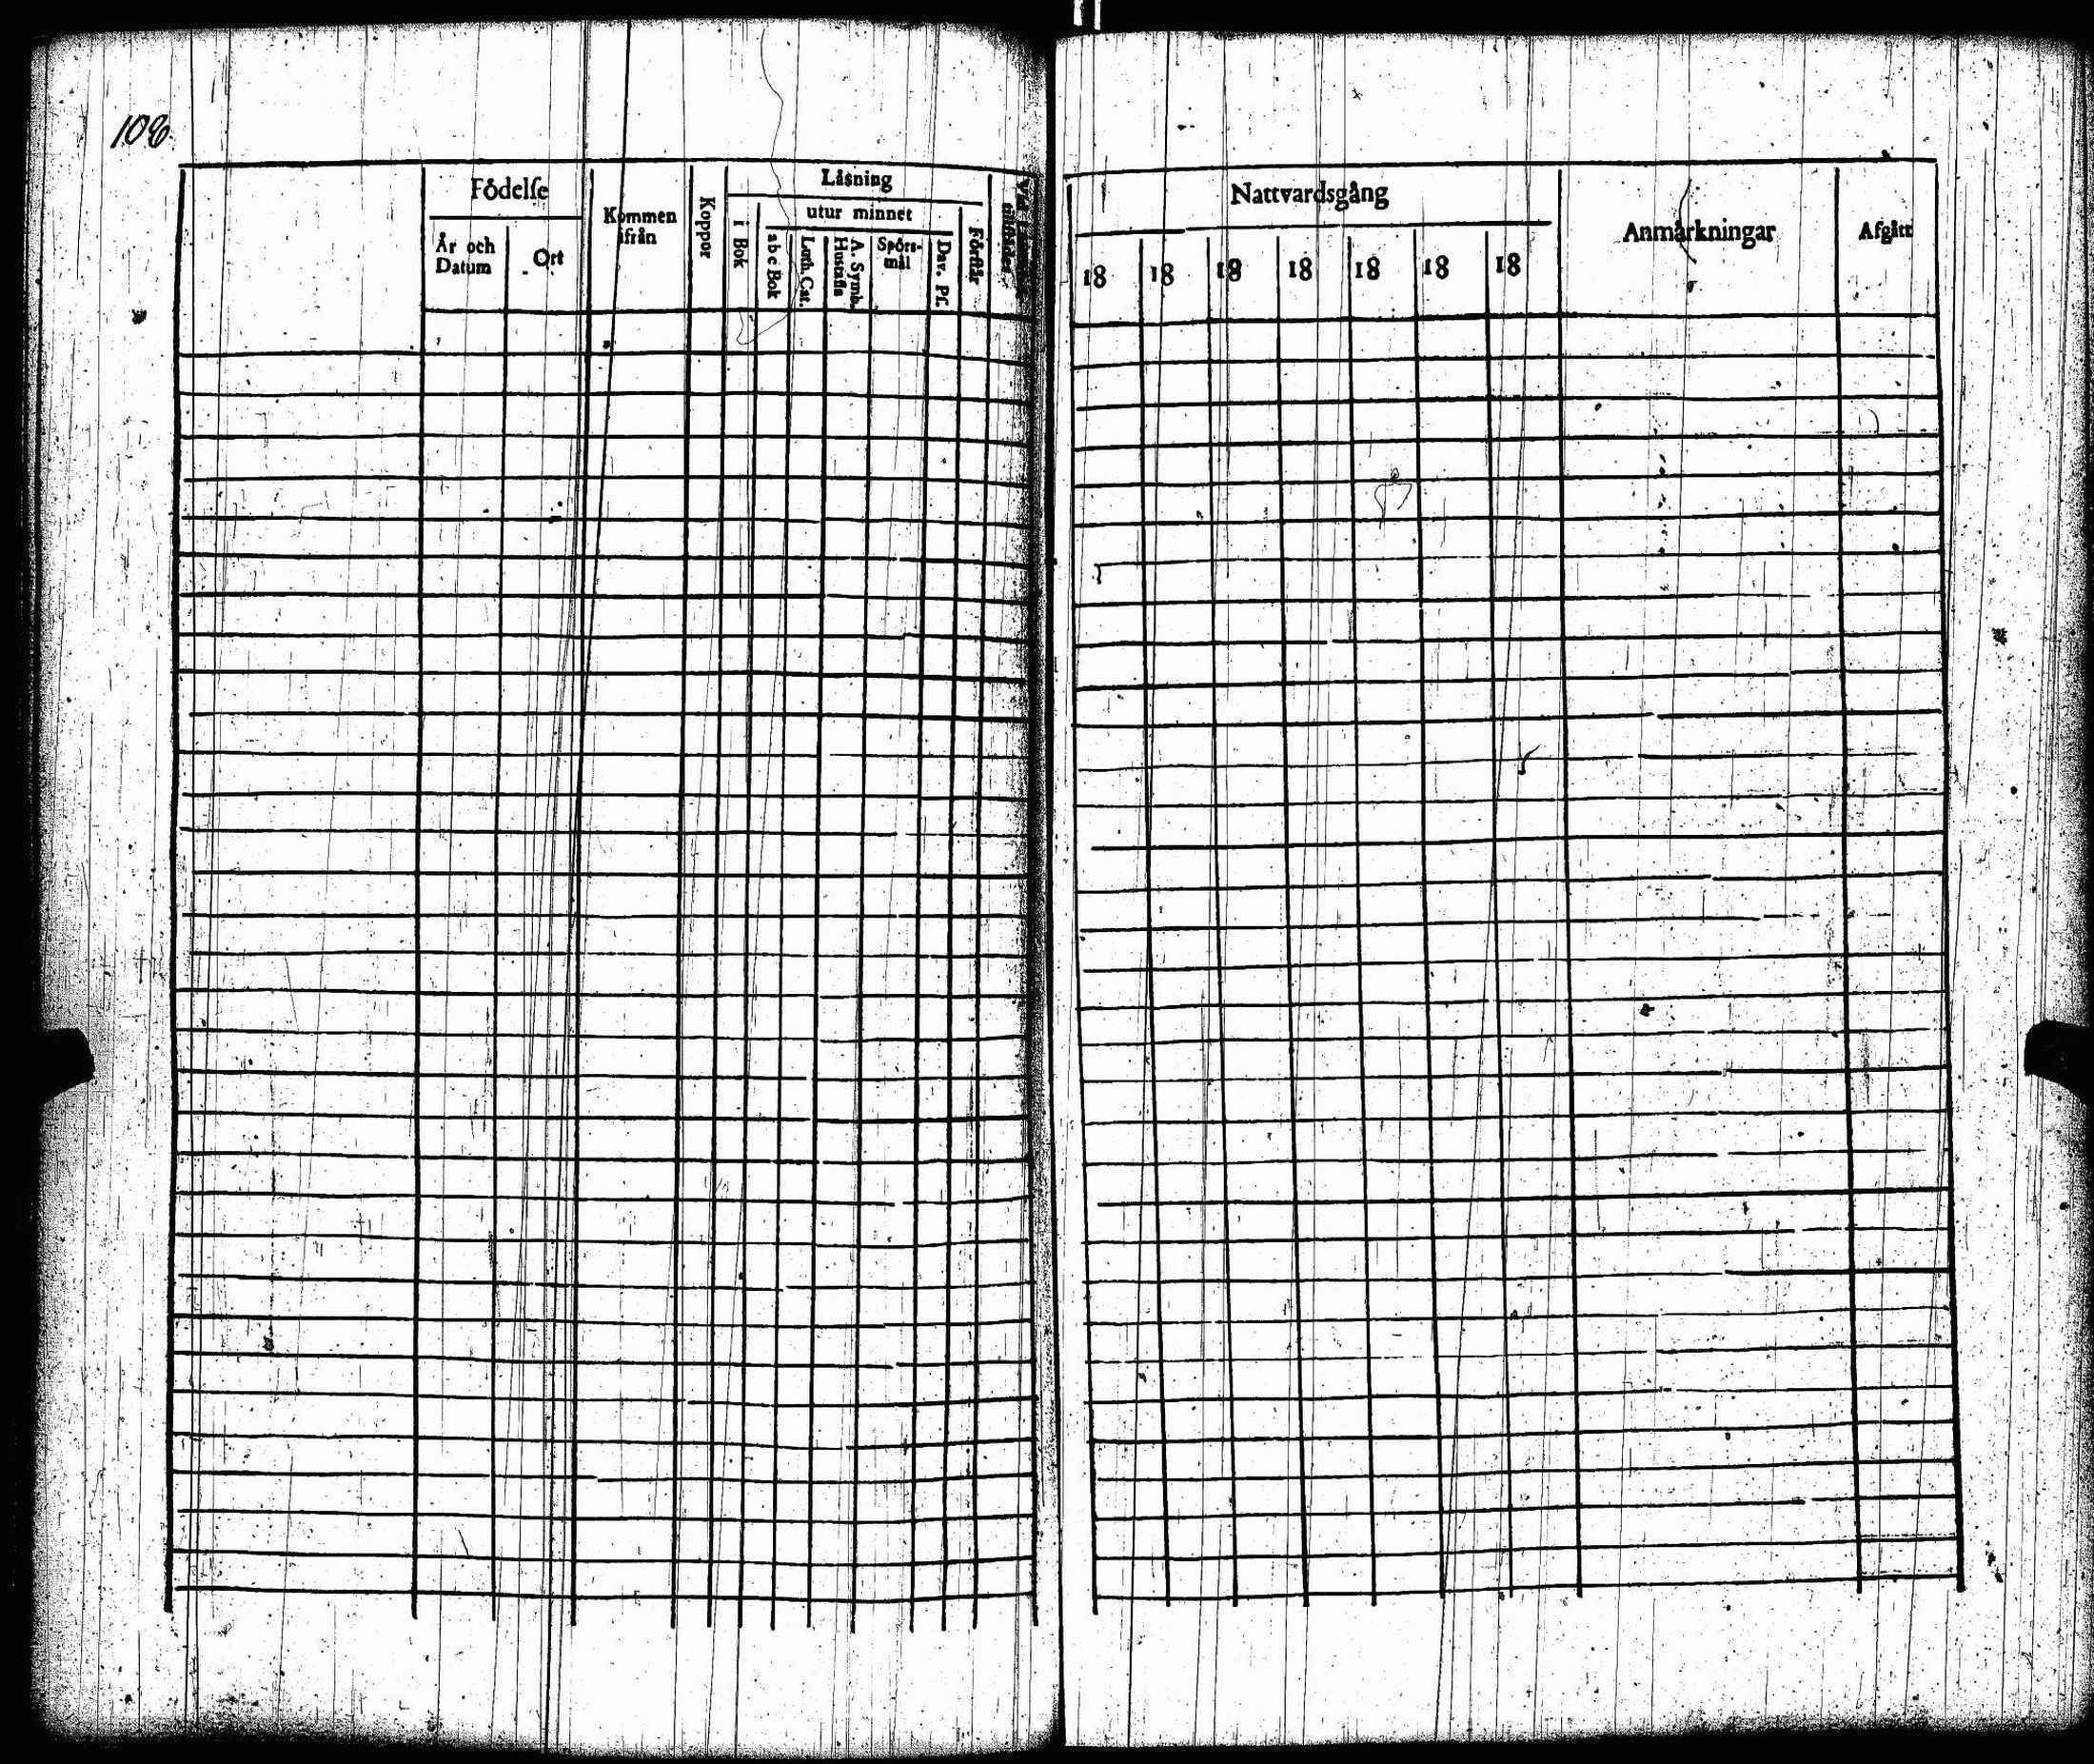 108.
Födelse
År och Datum
Ort
Kommen ifrån
Koppor
Läsning
i Bok
utur minnet
a b c Bok
Luth. Cat.
A. Symb. Hustafla
Spörs-mål
Dav. Ps.
Förstår
Nattvardsgång
18 18 18 18 18 18 18
Anmärkningar
Afgått